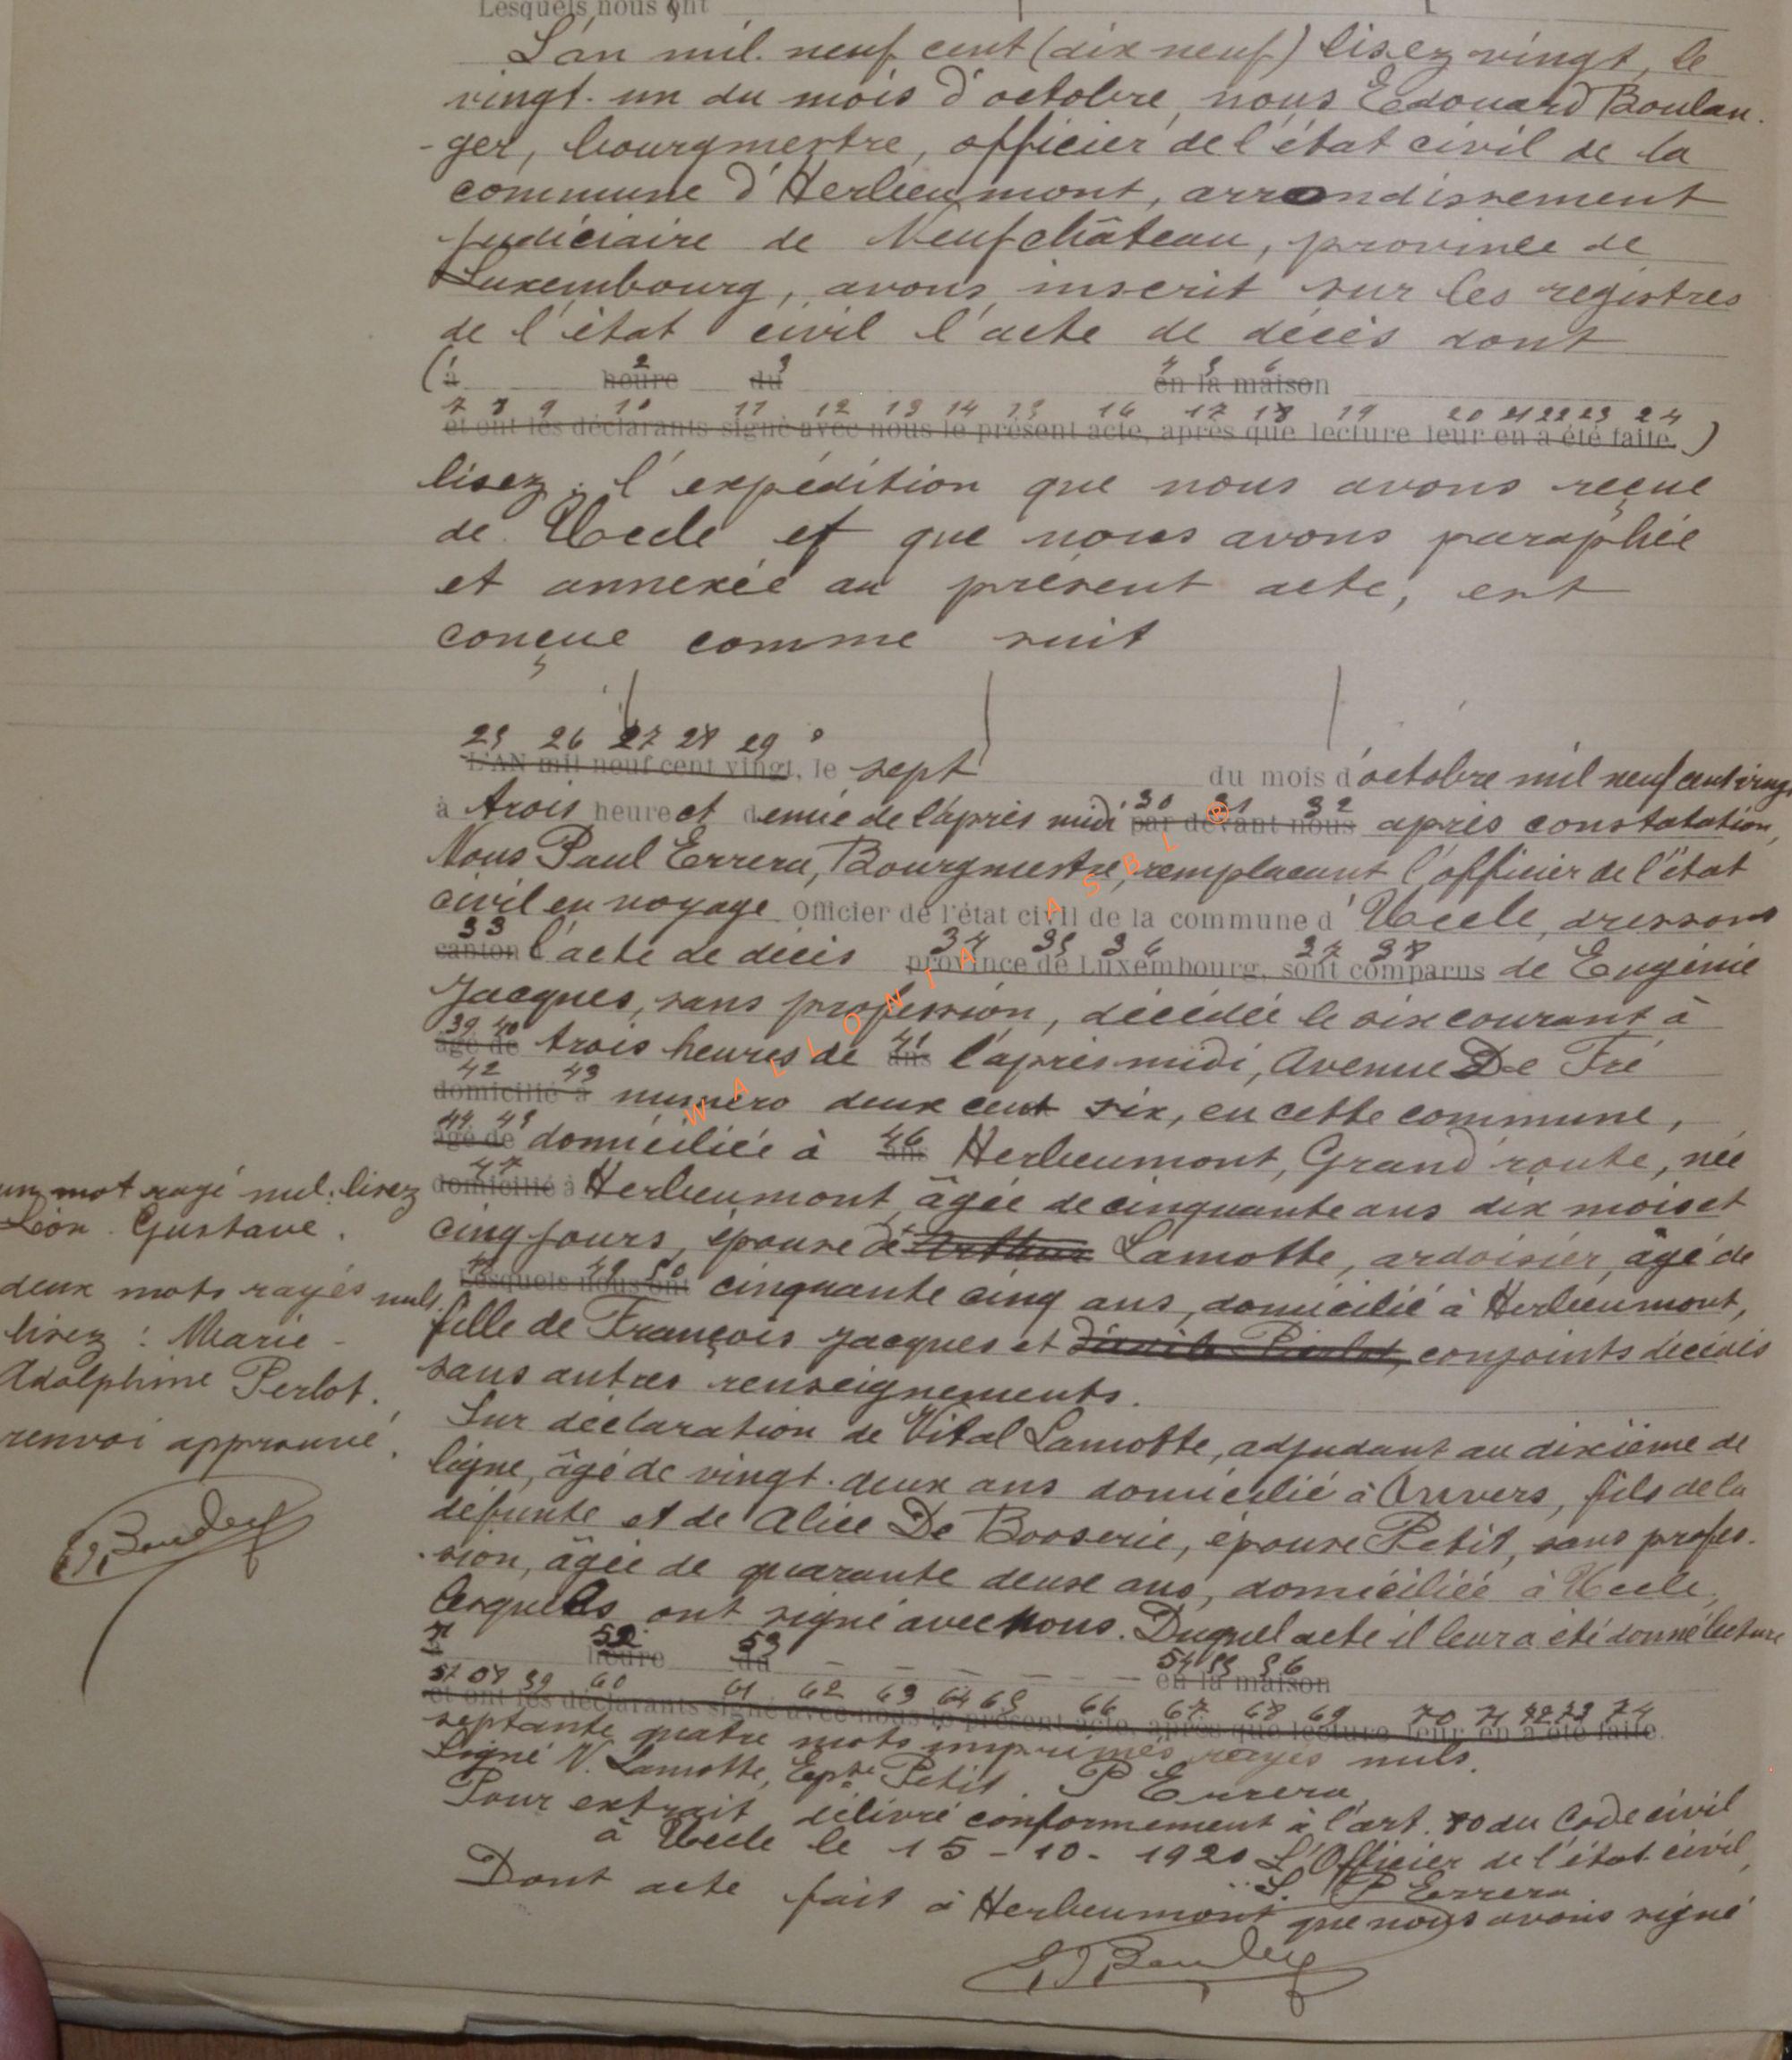 Lesquels nous ont
L'an mil neuf cent (dix neuf) lisez vingt, le
vingt-un du mois d'octobre, nous Edouard Boulan-
-ger, bourgmestre, officier de l'état civil de la
commune d'Herbeumont, arrondissement
judiciaire de Neufchâteau, province de
Luxembourg, avons inscrit sur les registres
de l'état civil l'acte de décès dont
2 3 4 5 6
(à heure du en la maison
7 8 9 10 11 12 13 14 15 16 17 18 19 20 21 22 23 24
et ont les déclarants signé avec nous le présent acte, après que lecture leur en a été faite.)
lisez: l'expédition que nous avons reçue
de Uccle et que nous avons paraphée
et annexée au présent acte, est
conçue comme suit
25 26 27 28 29
L'AN mil neuf cent vingt, le sept du mois d'octobre mil neuf cent vingt
30 31 32
à trois heure et demie de l'après midi par devant nous après constatation,
Nous Paul Errera, Bourgmestre, remplaçant l'officier de l'état
civil en voyage Officier de l'état civil de la commune d'Uccle, dressons
33 34 35 36 37 38
canton l'acte de décès province de Luxembourg, sont comparus de Eugénie
Jacques, sans profession, décédée le six courant à
39 40 41
âgé de trois heures de ans l'après midi, Avenue De Fré
42 43
domicilié à numéro deux cent six, en cette commune,
44 45 46
âgé de domiciliée à ans Herbeumont, Grand'route, née
47
domicilié à Herbeumont, âgée de cinquante ans dix mois et
cinq jours, épouse de Arthur Lamotte, ardoisier, âgé de
48 49 50
Lesquels nous ont cinquante cinq ans, domicilié à Herbeumont,
fille de François Jacques et Perlot, conjoints décédés
sans autres renseignements.
Sur déclaration de Vital Lamotte, adjudant au dixième de
ligne, âgé de vingt-deux ans domicilié à Anvers, fils de la
défunte et de Alice De Booserie, épouse Petit, sans profes-
-sion, âgée de quarante deux ans, domiciliée à Uccle,
lesquels ont signé avec nous. Duquel acte il leur a été donné lecture
52 53 54 55 56
heure du en la maison
57 58 59 60 61 62 63 64 65 66 67 68 69 70 71 72 73 74
et ont les déclarants signé avec nous le présent acte, après que lecture leur en a été faite.
septante quatre mots imprimés rayés nuls.
Signé V. Lamotte, Epse Petit. P Errera
Pour extrait délivré conformément à l'art. 80 du Code civil
à Uccle le 15-10-1920 L'Officier de l'état civil,
S. P Errera
Dont acte fait à Herbeumont que nous avons signé
un mot rayé nul: lisez
Léon Gustave.
deux mots rayés nuls.
lisez: Marie-
Adolphine Perlot.
renvoi approuvé.
WALLONIA ASBL ®